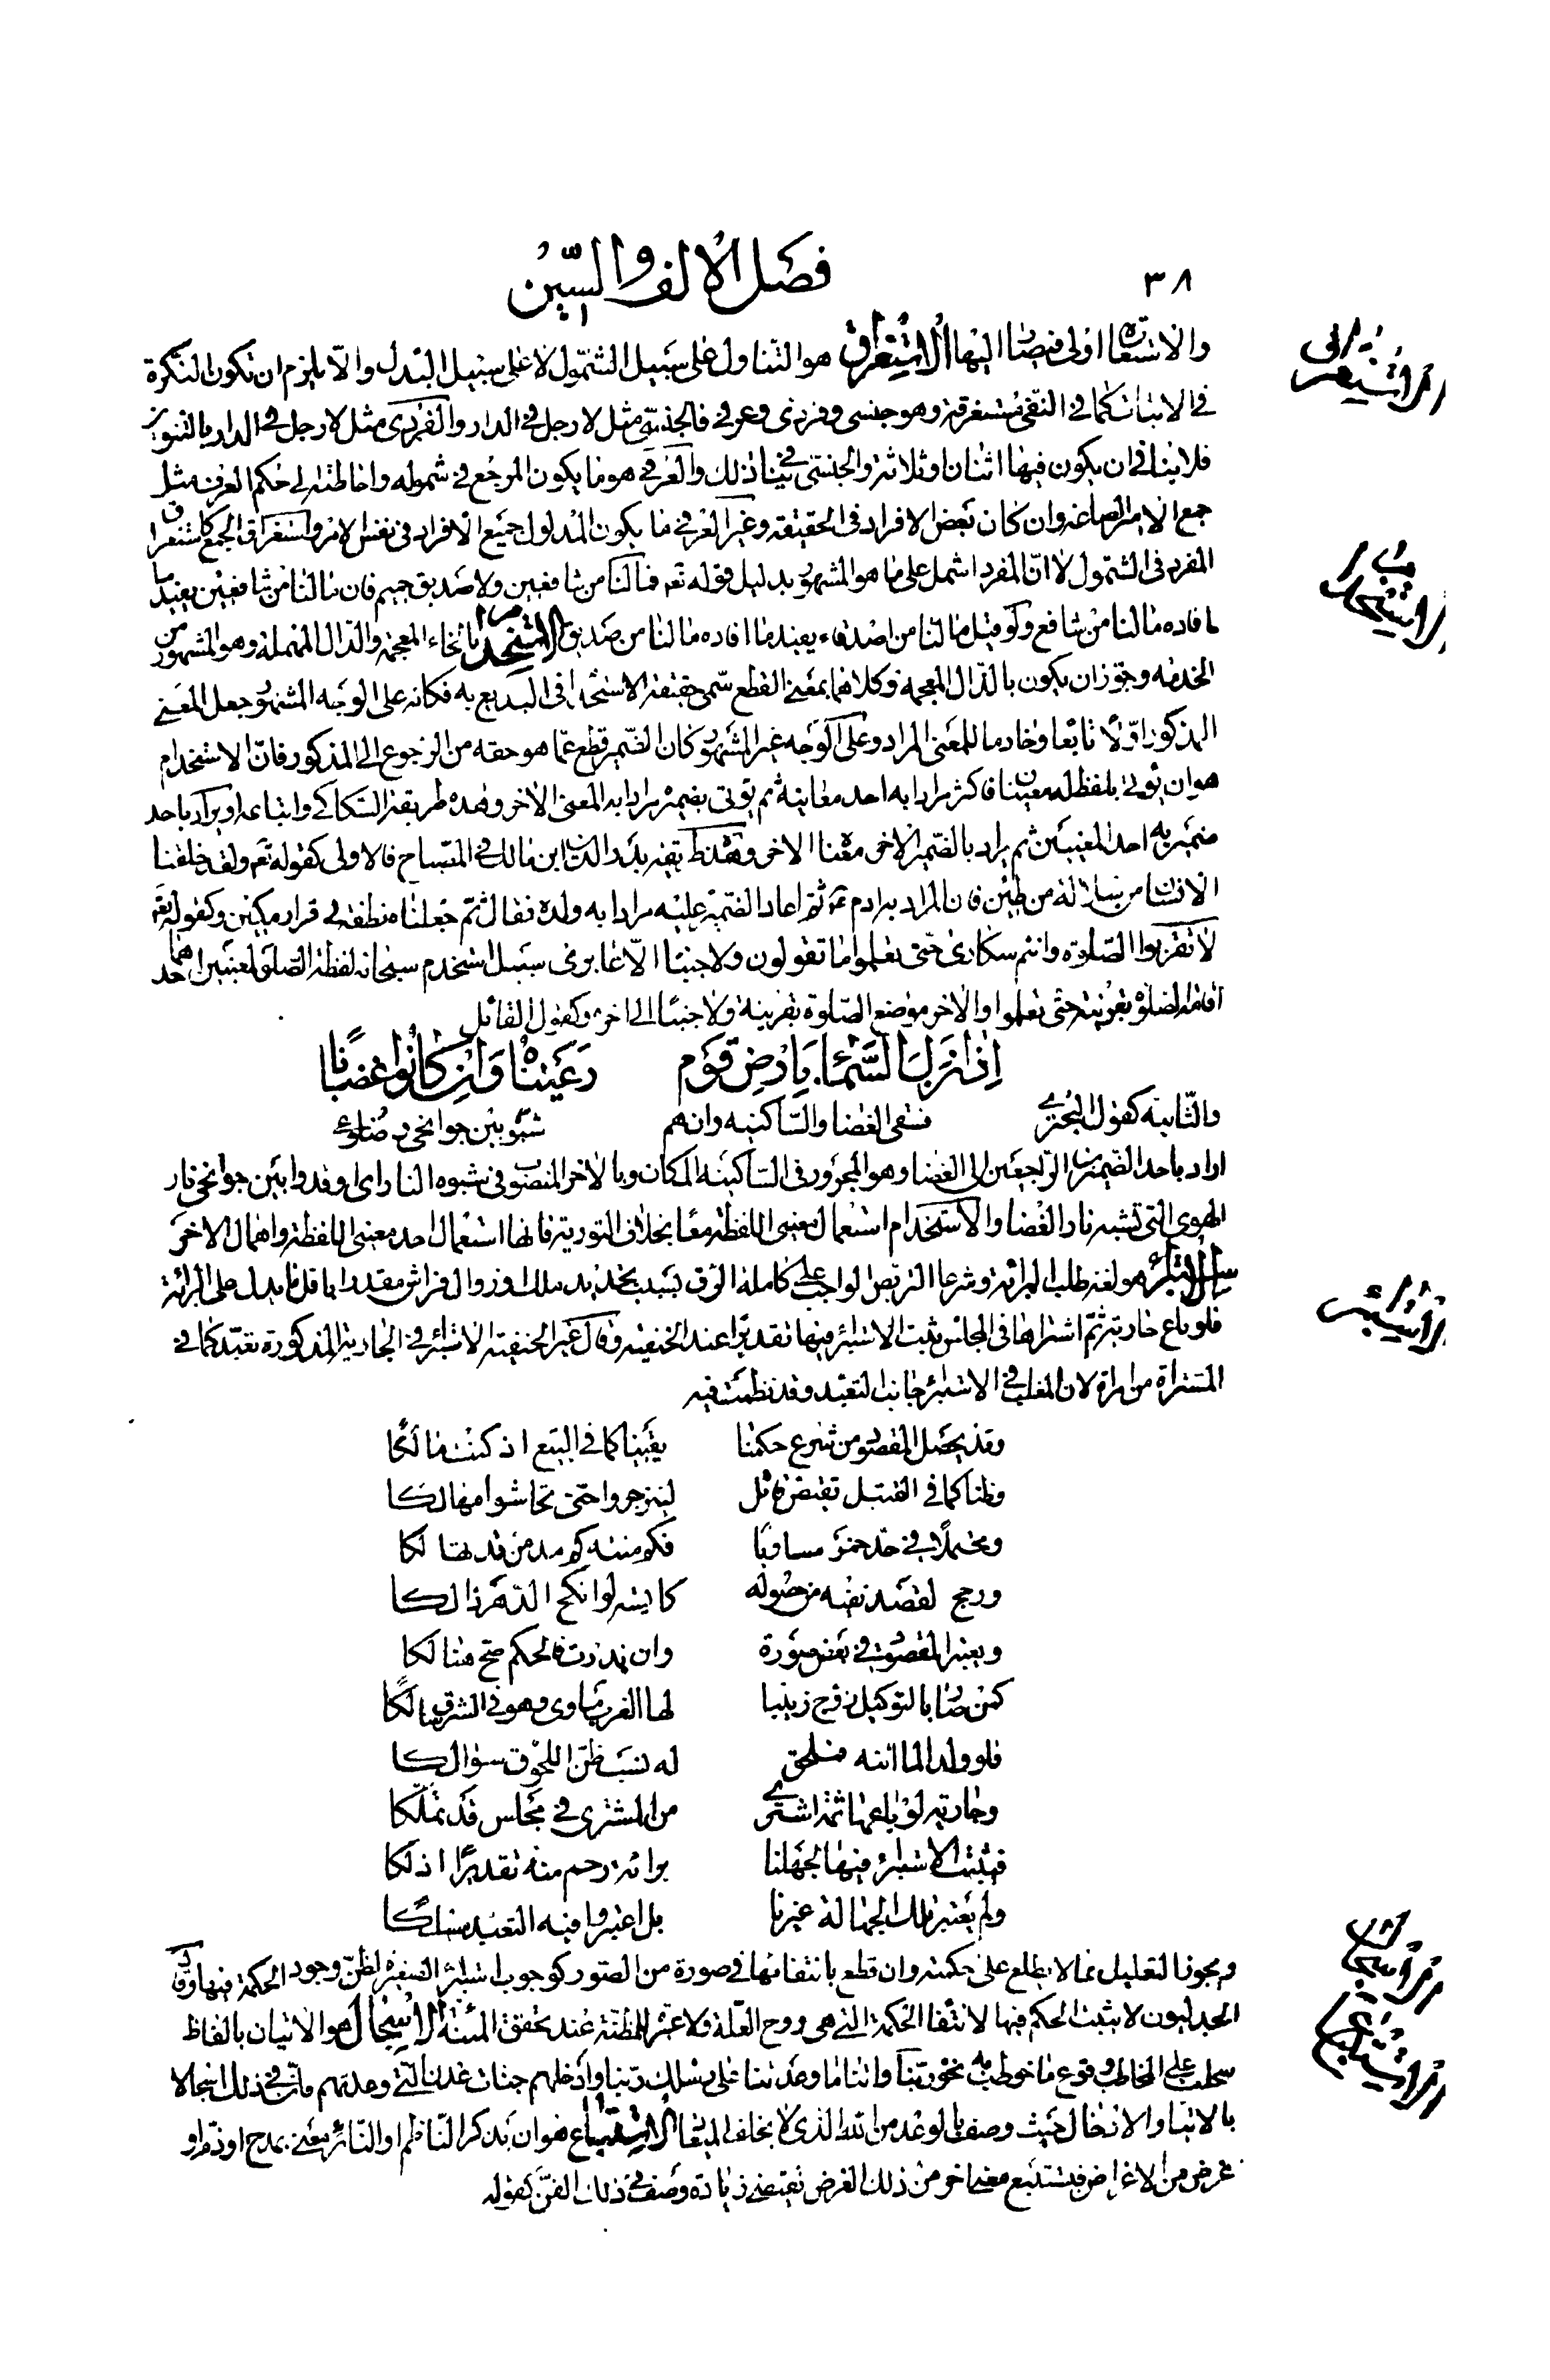 ٣٨
فصل الالف والسين
والاستعارة اولى فيصار اليها الاستغراق هو التناول على سبيل الشمول لا على سبيل البدل والا يلزم ان تكون النكرة
الاستغراق
في الاثبات كما في النفي مستغرقة وهو جنسي وفردي وعرفي فالجنسي مثل لا رجل في الدار والفردي مثل لا رجل في الدار بالتنوين
فلا ينافي ان يكون فيها اثنان او ثلاثة والجنسي ينافي ذلك والعرفي هو ما يكون المرجع في شموله واحاطته الى حكم العرف مثل
جمع الامير الصاغة وان كان بعض الافراد في الحقيقة وغير العرفي ما يكون المدلول جميع الافراد في نفس الامر واستغراق الجمع كاستغراق
المفرد في الشمول لا ان المفرد اشمل على ما هو المشهور بدليل قوله تع فما لنا من شافعين ولا صديق حميم فان ما لنا من شافعين يفيد
الاستخدام
ما افاده ما لنا من شافع ولو قيل ما لنا من اصدقاء يفيد ما افاده ما لنا من صديق الاستخدام بالخاء المعجمة والدال المهملة وهو المشهور من
الخدمة وجوز ان يكون بالذال المعجمة وكلاهما بمعنى القطع سمى حقيقة الاستخدام في البديع به فكانه على الوجه المشهور جعل المعنى
المذكور اولا تابعا وخادما للمعنى المراد وعلى الوجه غير المشهور كان الضمير قطع عما هو حقه من الرجوع الى المذكور فان الاستخدام
هو ان يؤتى بلفظ له معنيان فاكثر مرادا به احد معانيه ثم يؤتى بضميره مرادا به المعنى الاخر وهذه طريقة السكاكي واتباعه او يراد باحد
ضميريه احد المعنيين ثم يراد بالضمير الاخر معناه الاخر وهذه طريقة بدر الدين ابن مالك في المصباح فالاولى كقوله تع ولقد خلقنا
الانسان من سلالة من طين فان المراد به ادم ثم اعاد الضمير عليه مرادا به ولده فقال ثم جعلناه نطفة في قرار مكين وكقوله تع
لا تقربوا الصلوة وانتم سكارى حتى تعلموا ما تقولون ولا جنبا الا عابري سبيل استخدم سبحانه لفظة الصلوة لمعنيين احدهما
اقامة الصلوة بقرينة حتى تعلموا والاخر موضع الصلوة بقرينة ولا جنبا الى اخره وكقول القائل
اذا نزل السماء بارض قوم رعيناه وان كانوا غضابا
والثانية كقول البحتري فسقى الغضا والساكنيه وان هم شبوه بين جوانحي وضلوعي
اراد باحد الضميرين الراجعين الى الغضا وهو المجرور في الساكنيه المكان وبالاخر المنصوب في شبوه النار اي اوقدوا بين جوانحي نار
الهوى التي تشبه نار الغضا والاستخدام استعمال معنيي اللفظة معا بخلاف التورية فانها استعمال احد معنيي اللفظة واهمال الاخر
الاستبراء هو لغة طلب البرائة وشرعا التربص الواجب على كاملة الرق بسبب تجديد ملك او زوال فراش مقدرا باقل ما يدل على البرائة
الاستبراء
فلو باع جارية ثم اشتراها في المجلس يثبت الاستبراء فيها تقديرا عند الحنفية وقال غير الحنفية الاستبراء في الجارية المذكورة تعبد كما في
المشتراة من امراة لان المغلب في الاستبراء جانب التعبد وقد نظمت فيه
وقد يحصل المقصود من شرع حكمنا يقينا كما في البيع اذ كنت مالكا
وظنا كما في القتل تقتص قاتل لينزجروا حتى تحاشوا مهالكا
ومحتملا في حد خمر مساويا
ورجح لقصد نفيه من حصوله كايسة لو انكح الدهر ذلكا
ويعتبر المقصود في بعض صورة وان ندرت فالحكم صح هنالكا
كمن صار بالتوكيل زوج زينبا لها الغرب ماوى وهو في الشرق سالكا
فلو ولدا لما اتته فملحق له نسب ظن اللحوق سؤالكا
وجارية لو باعها ثمه اشترى من المشتري في مجلس قد تملكا
فيثبت الاستبراء فيها لجهلنا برائة رحم منه تقديرا اذ لكا
ولم يعتبر تلك الجهالة غيرنا بل اعتبروا فيه التعبد مسلكا
ويجوز التعليل بما لا يطلع على حكمته وان قطع بانتفائها في صورة من الصور كوجوب استبراء الصغيرة لظن وجود الحكمة فيها وقال
الاسجال
الجدليون لا يثبت الحكم فيها لانتفاء الحكمة التي هي روح العلة ولا عبرة للمظنة عند تحقق المئنة الاسجال هو الاتيان بالفاظ
سجلت على المخاطب وقوع ما خوطب به نحو ربنا واتنا ما وعدتنا على رسلك ربنا وادخلهم جنات عدن التي وعدتهم فان في ذلك اسجالا
الاستتباع
بالايتاء والادخال حيث وصف بالوعد من الله الذي لا يخلف الميعاد الاستتباع هو ان يذكر الناظم او الناثر معنى بمدح او ذم او
غرض من الاغراض فيستتبع معنى اخر من ذلك الغرض تقتضي زيادة وصف في ذلك الفن كقوله